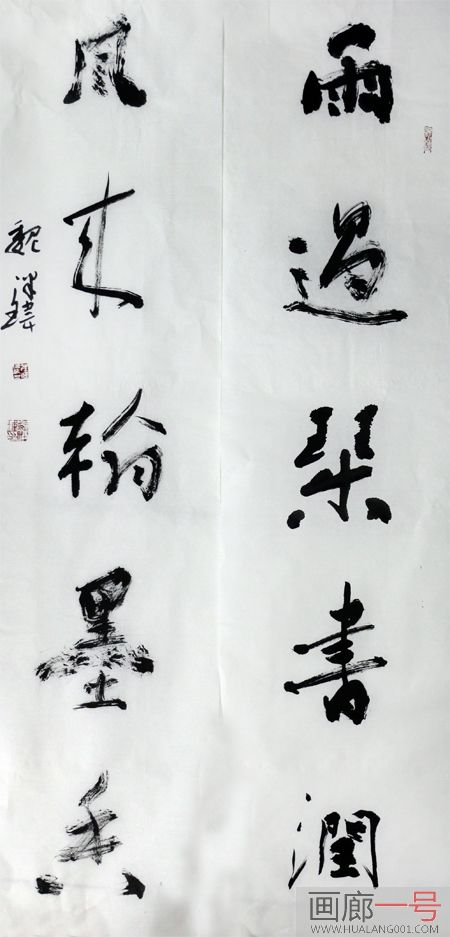 雨過琴書潤
風来翰墨香
画廊一号
WWW.HUALANG001.COM